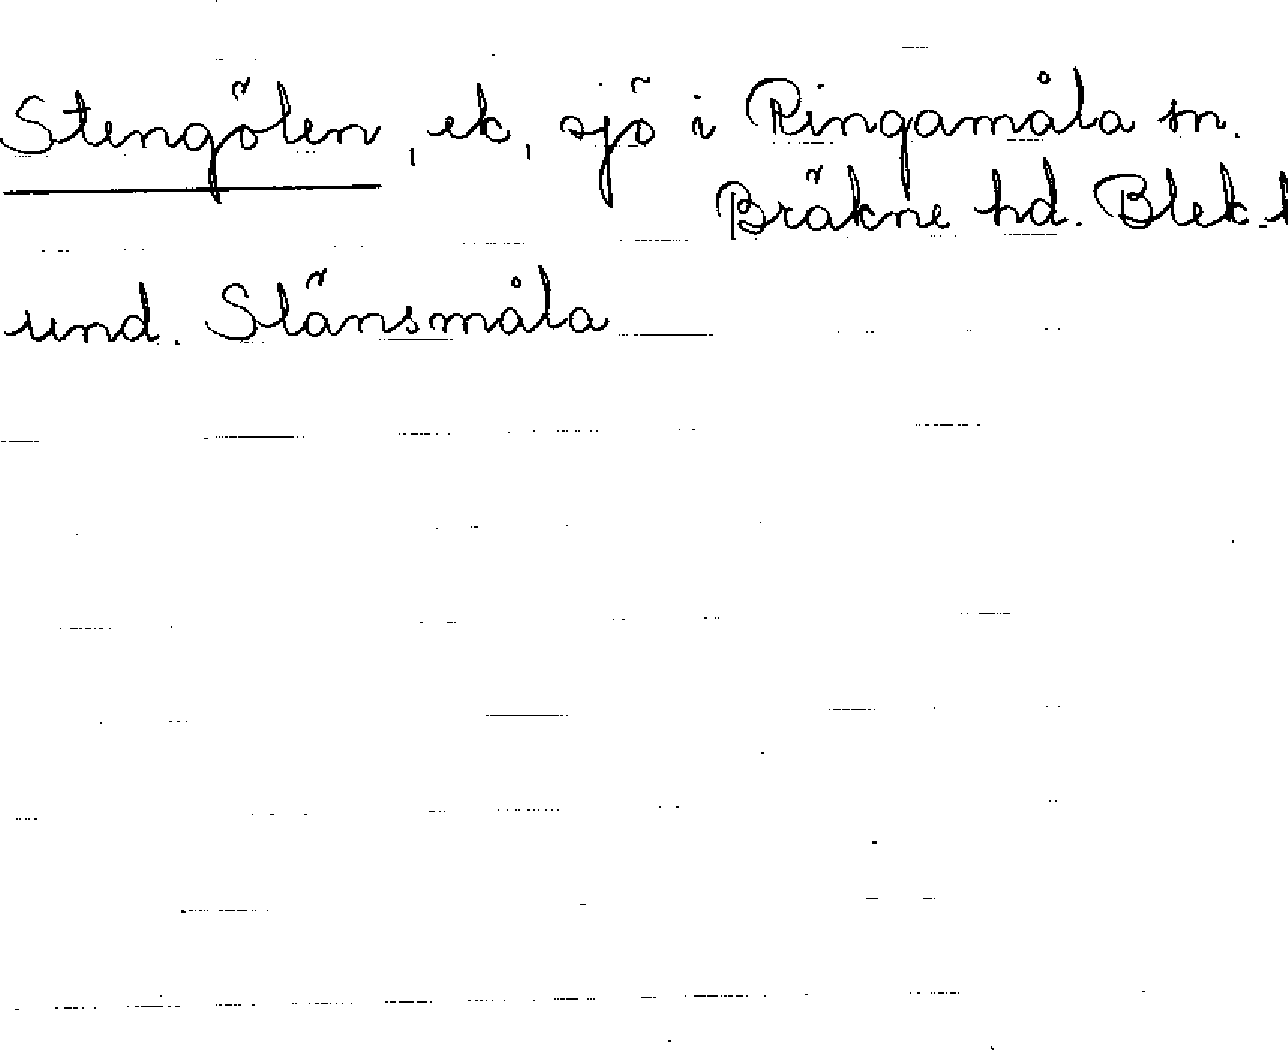 Stengölen, ek, sjö i Ringamåla sn.
Bräkne hd. Blek.
und. Slänsmåla